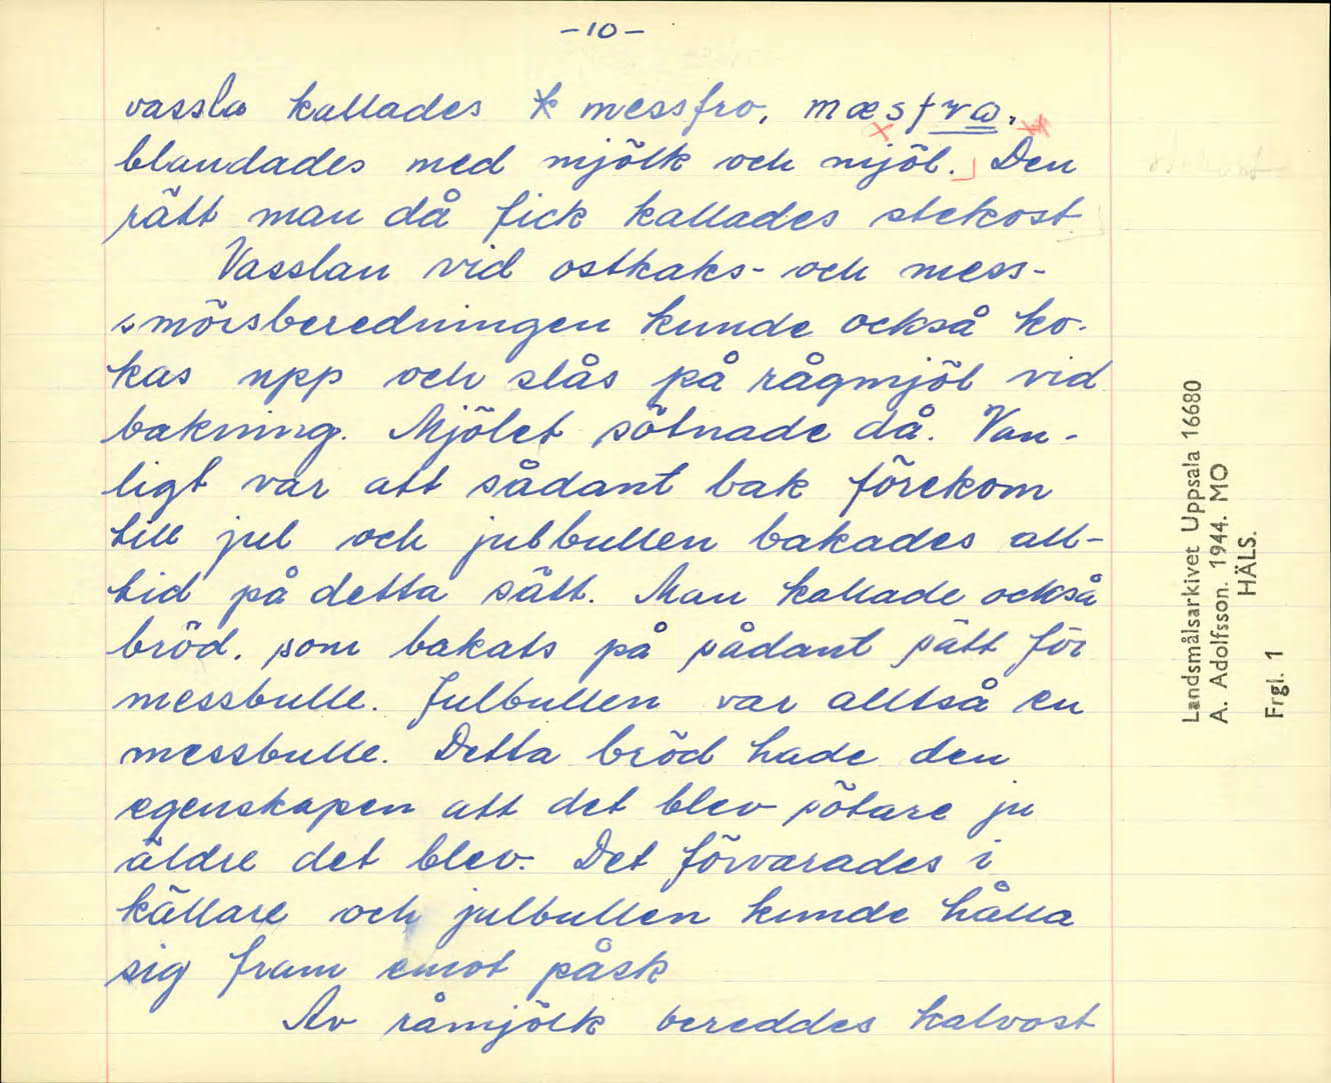 -10-
vassla kallades messfro, mæsfrω,
blandades med mjölk och mjöl. Den
rätt man då fick kallades stekost
Vasslan vid ostkaks- och mess-
smörsberedningen kunde också ko-
kas upp och slås på rågmjöl vid
bakning. Mjölet sötnade då. Van-
ligt var att sådant bak förekom
till jul och julbullen bakades all-
tid på detta sätt. Man kallade också
bröd, som bakats på sådant sätt för
messbulle. Julbullen var alltså en
messbulle. Detta bröd hade den
egenskapen att det blev sötare ju
äldre det blev. Det förvarades i
källare och julbullen kunde hålla
sig fram emot påsk
Av råmjölk bereddes kalvost
Landsmålsarkivet Uppsala 16680
A. Adolfsson. 1944. MO
HÄLS.
Frgl. 1